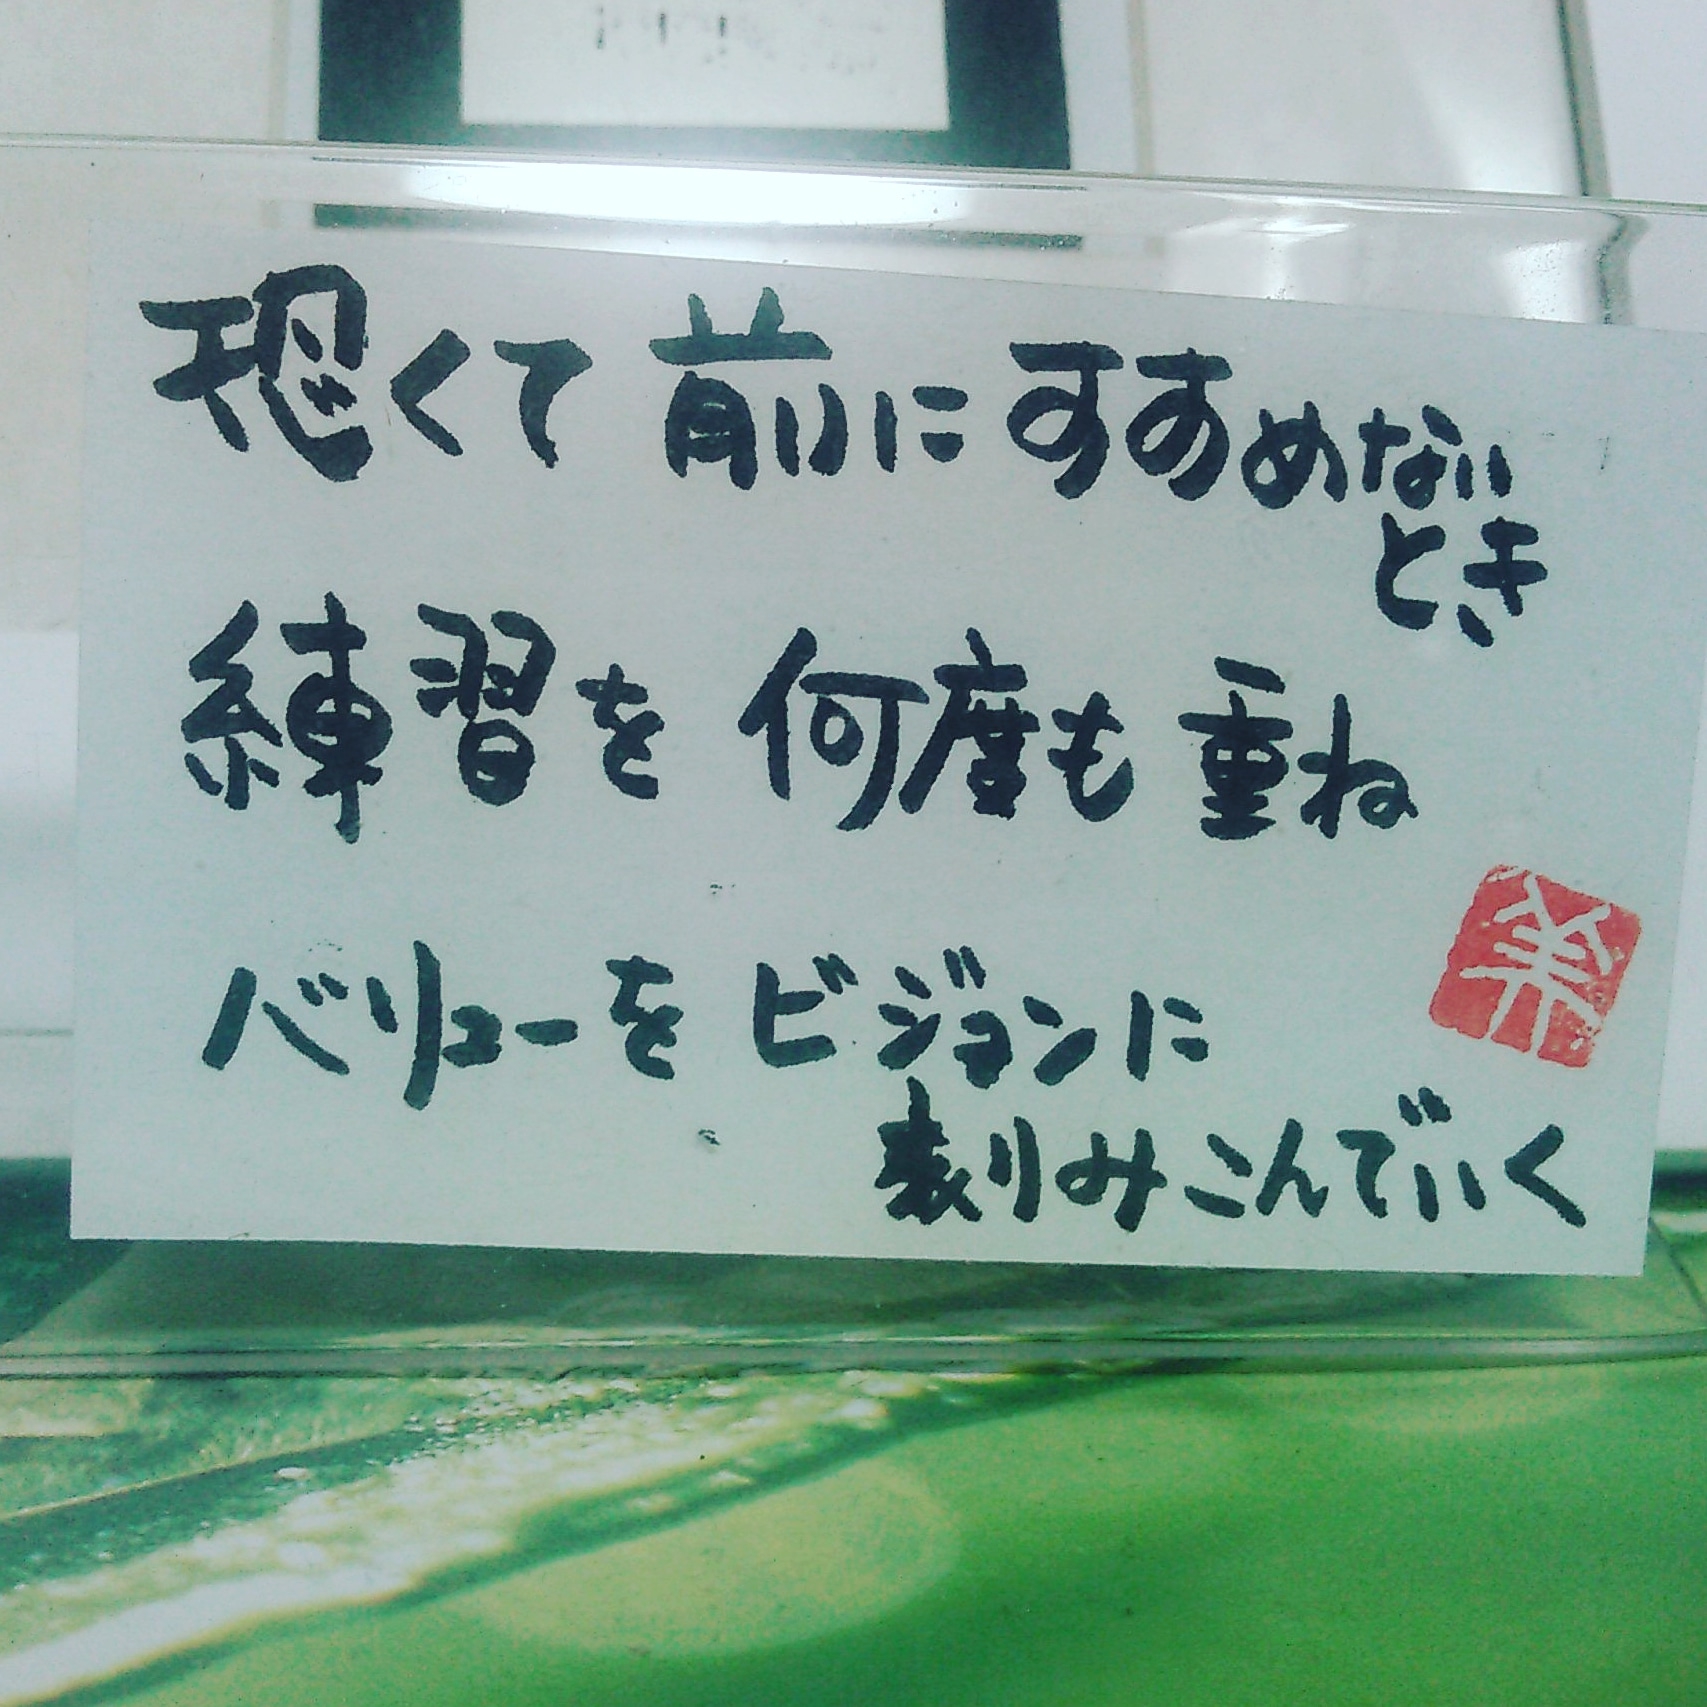 恐くて前にすすめない
とき
練習を何度も重ね
バリューをビジョンに
刻みこんでいく
美